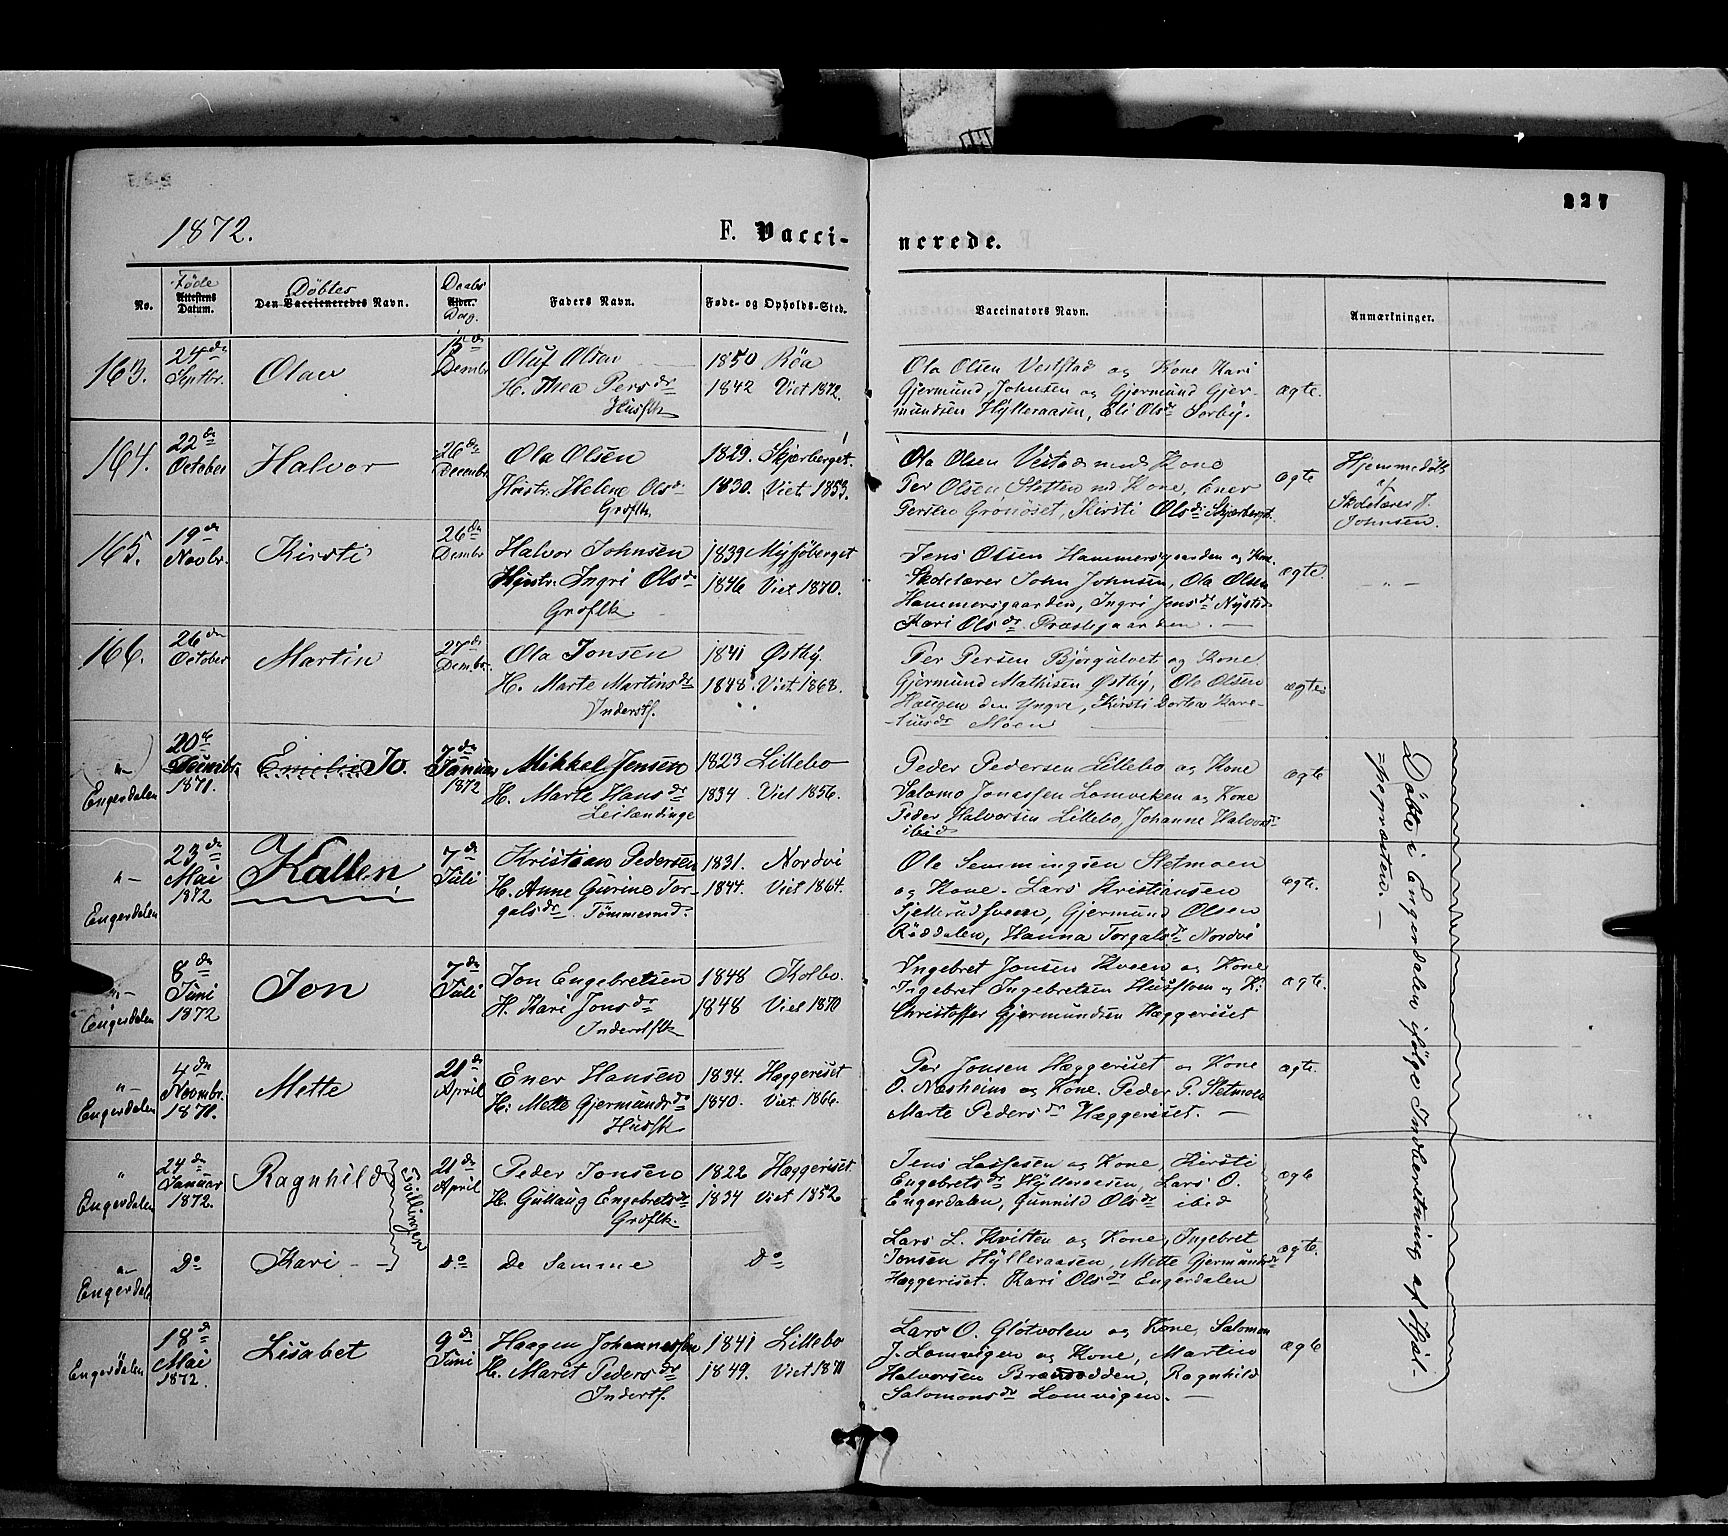 227
1872.
F. Vacci-
nerede.
No.
Føde
Attestens
Datum.
Døbtes
Den Vaccineredes Navn.
Daabs
Alder.
Dag.
Faders Navn.
Føde- og Opholds-Sted.
Vaccinators Navn.
Anmærkninger.
163.
24 dn
Septbr.
Olav
15 dn
Dembr
Oluf Olsen
H. Thea Persdr
Husflk
1850 Røa
1842 Viet 1872.
Ola Olsen Vestad og Kone Kari
Gjermund Johnsen og Gjermund Gjer-
mundsen Hylleraasen, Eli Olsdr Sorby.
ægte.
164.
22 dn
October
Halvor
26 dn
Decembr
Ola Olsen
Hustr: Helene Olsd
Grdflk.
1829. Skjærberget.
1830. Viet 1853.
Ola Olsen Vestad med Kone
Per Olsen Sletten md Kone, Ener
Persen Grønoset, Kirsti Olsdr Skjærberget.
ægte
Hjemmedøbt
af
Skolelærer J.
Johnsen.
165.
19 dn
Novbr.
Kirsti
26 dn
Dembr
Halvor Johnsen
Hustr: Ingri Olsdr
Grdflk.
1839 Myssjøberget
1846 Viet 1870.
Jens Olsen Hammersgaarden og Kone.
Skolelærer John Johnsen, Ola Olsen
Hammersgaarden, Ingri Jensdr Nysted
Kari Olsdr. Præstegaarden. —
ægte.
- " -
166.
26 dn
October
Martin
27 dn
Dembr.
Ola Jonsen
H. Marte Martinsdr
Inderstf.
1841 Østby.
1848. Viet 1868.
Per Persen Bjørgulvet og Kone
Gjermund Mathisen Østby, Ole Olsen
Haugen den Yngre, Kirsti Dortea Kare-
liusdr Moen
ægte
"-
Engerdalen
20 de
Decembr.
1871.
Emilie Jo.
7 dn
Januar
1872
Mikkel Jensen
H. Marte Hansdr
Leilændinge
1823 Lillebo
1834 Viet 1856.
Peder Pedersen Lillebo og Kone
Salomo Jonassen Lomviken og Kone
Peder Halvorsen Lillebo, Johanne Halvorsd
ibid
ægte
"-
Engerdalen
23 dn
Mai
1872
Kallen
7 dn
Juli
Kristian Pedersen
H. Anne Gurine Tor-
galsdr. Tømmermd.
1831. Nordvi
1844. Viet 1864.
Ole Semmingsen Sletmoen
og Kone. Lars Kristiansen
Sjellrudsveen, Gjermund Olsen
Røddalen, Hanna Torgalsdr Nordvi
ægte.
"-
Engerdalen
8 dn
Juni
1872
Jon
7 dn
Juli
Jon Engebretsen
H. Kari Jonsdr
Inderstflk
1848 Kolbo.
1848 Viet 1870
Ingebret Jonsen Kveen og Kone
Ingebret Ingebretsen Husfloen og K:
Christoffer Gjermundsen Hæggeriset
ægte.
"-
Engerdalen
4 dn
Novmbr.
1871.
Mette
21 dn
April
Ener Hansen
H: Mette Gjermundsdr
Husflk
1834. Hæggeriset
1840. Viet 1866.
Per Jonsen Hæggeriset og Kone
O. Næsheim og Kone. Peder P. Sletmoen
Marte Pedersdr Hæggeriset. —
ægte.
"
Engerdalen
24 dn
Januar
1872.
Ragnhild
Tvillinger
21 dn
April
Peder Jonsen
H. Gullaug Engebretsdr
Grdflk.
1822 Hæggeriset
1834 Viet 1852
Jens Lassesen og Kone, Kirsti
Engebretsdr Hylleraasen, Lars O.
Engerdalen, Gunnild Olsdr ibid
ægte
"-
Engerdalen
Do
Kari - -
do
De Samme
Do
Lars L. Kvitten og Kone, Ingebret
Jonsen Hylleraasen, Mette Gjermundsdr
Hæggeriset. Kari Olsdr Engerdalen
ægte.
Engerdalen
18 d
Mai
1872.
Lisabet
9 dn
Juni
Haagen Johannessen
H. Marit Pedersdr
Inderstf.
1841 Lillebo
1849. Viet 1871
Lars O. Gløtvolen og Kone, Salomon
J. Lomvigen og Kone, Martin
Halvorsen Bræodden, Ragnhild
Salomonsdr Lomvigen. —
ægte
Døbte i Engerdalen ifølge Indberetning af Hjæl-
=pepræsten. —